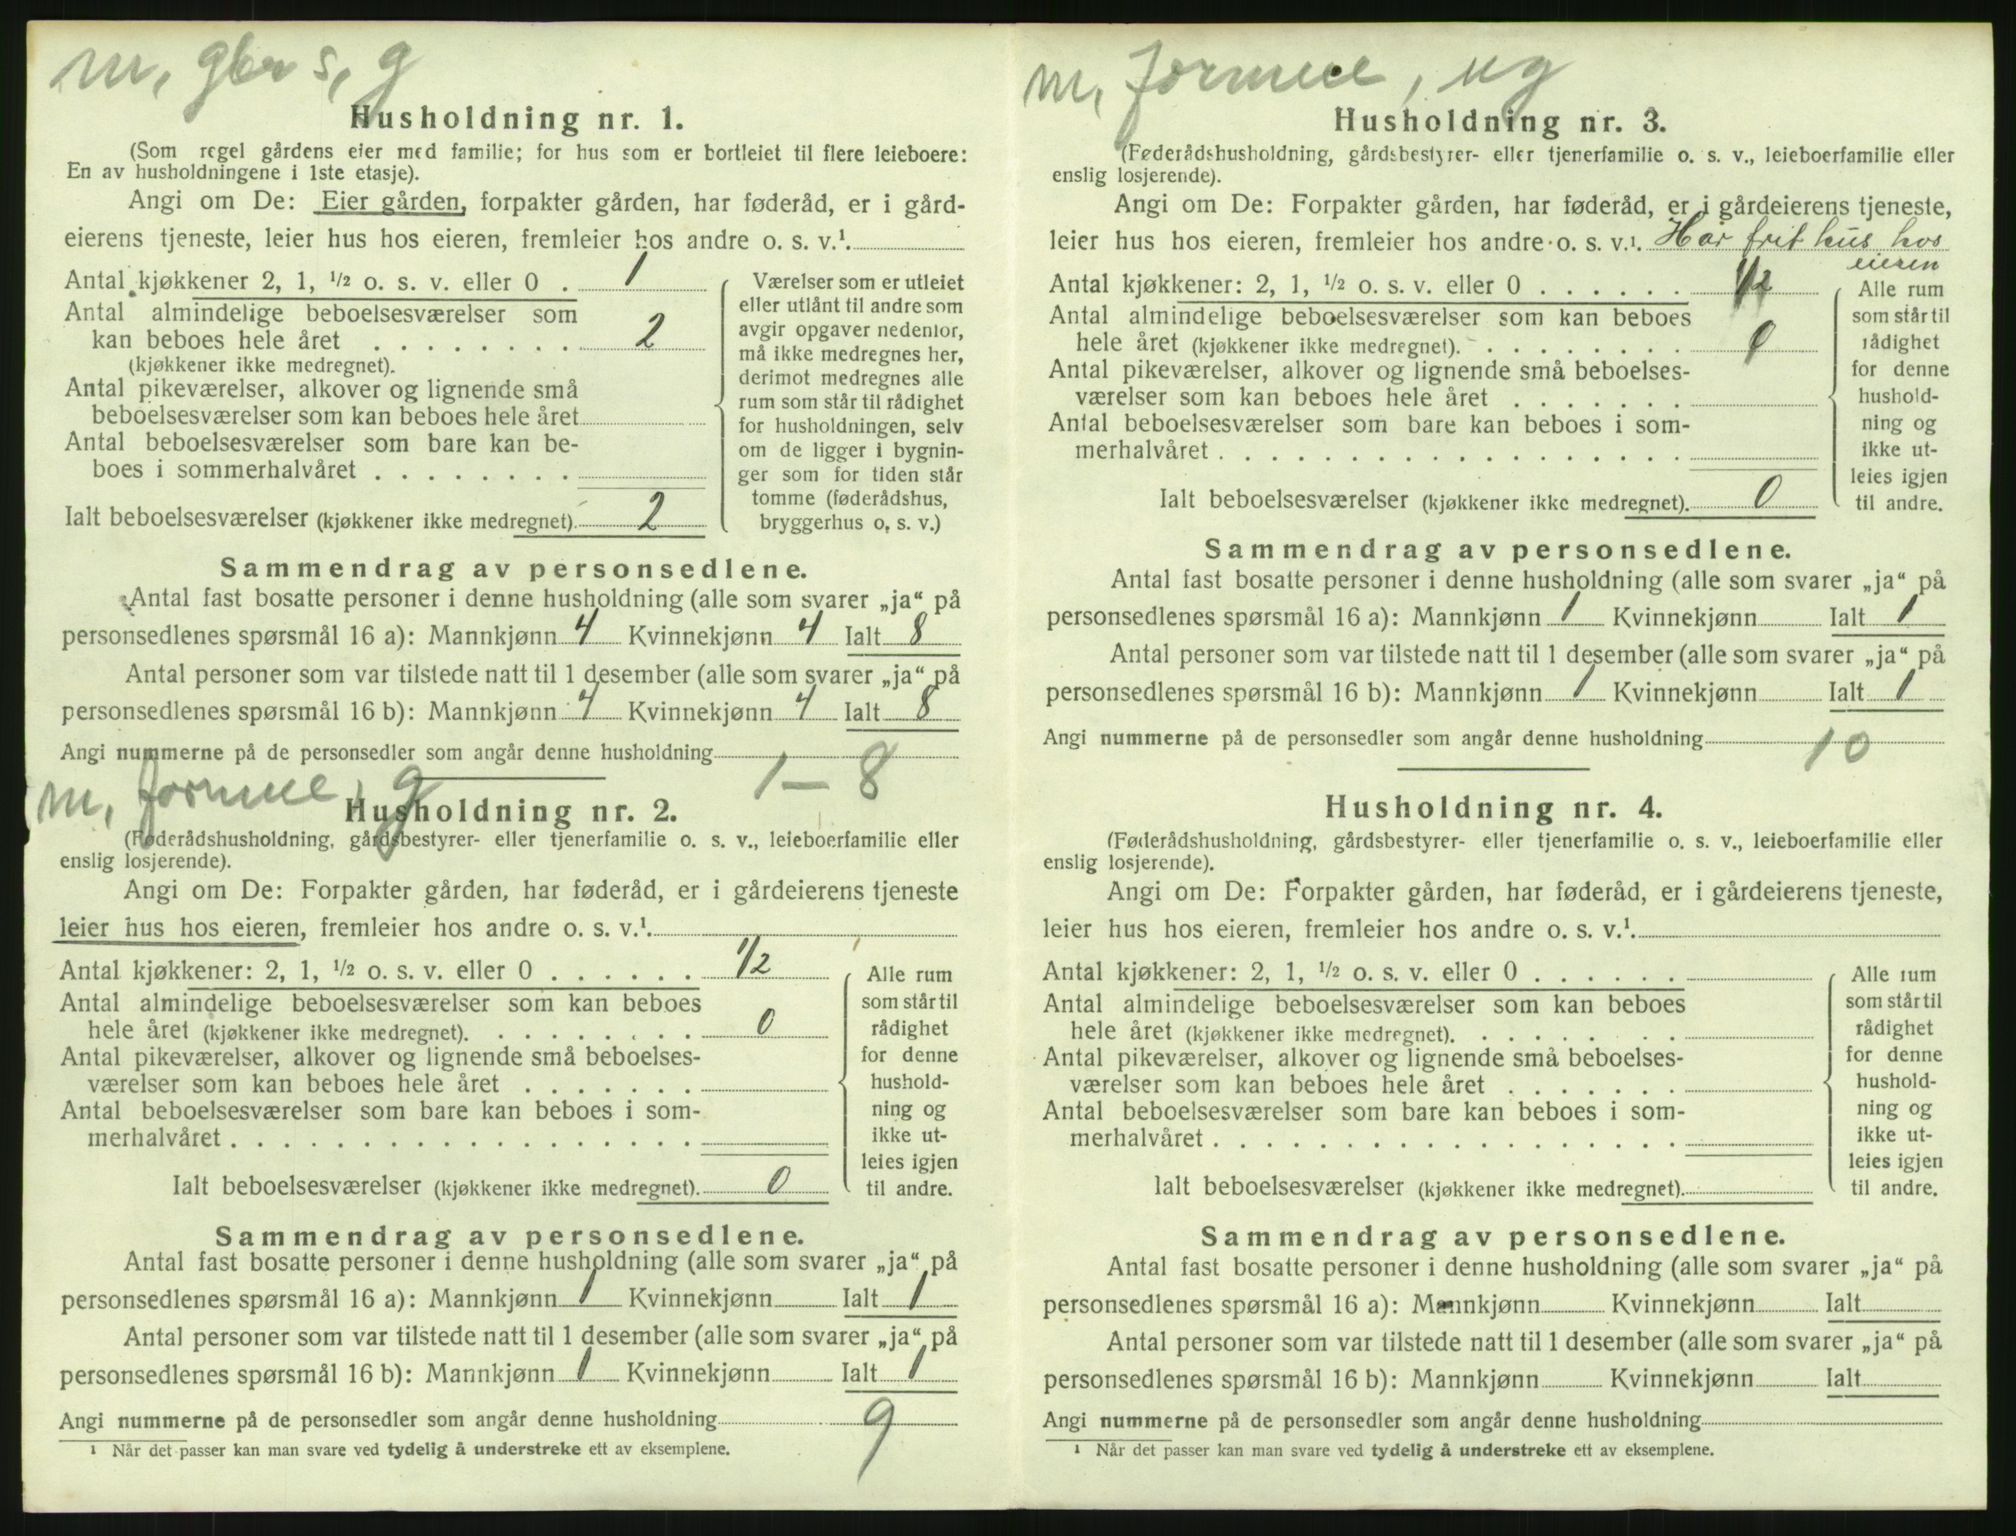 m, gbr s, g
Husholdning nr. 1.
(Som regel gårdens eier med familie; for hus som er bortleiet til flere leieboere:
En av husholdningene i 1ste etasje).
Angi om De: Eier gården, forpakter gården, har føderåd, er i gård-
eierens tjeneste, leier hus hos eieren, fremleier hos andre o. s. v.¹.
Antal kjøkkener 2, 1, ½ o. s. v. eller 0 . 1
Antal almindelige beboelsesværelser som
kan beboes hele året . . . . . . . . . 2
(kjøkkener ikke medregnet).
Antal pikeværelser, alkover og lignende små
beboelsesværelser som kan beboes hele året
Antal beboelsesværelser som bare kan be-
boes i sommerhalvåret . . . . . . . .
Ialt beboelsesværelser (kjøkkener ikke medregnet). 2
Værelser som er utleiet
eller utlånt til andre som
avgir opgaver nedenfor,
må ikke medregnes her,
derimot medregnes alle
rum som står til rådighet
for husholdningen, selv
om de ligger i bygnin-
ger som for tiden står
tomme (føderådshus,
bryggerhus o. s. v.)
Sammendrag av personsedlene.
Antal fast bosatte personer i denne husholdning (alle som svarer „ja“ på
personsedlenes spørsmål 16 a): Mannkjønn 4 Kvinnekjønn 4 Ialt 8
Antal personer som var tilstede natt til 1 desember (alle som svarer „ja“ på
personsedlenes spørsmål 16 b): Mannkjønn 4 Kvinnekjønn 4 Ialt 8
Angi nummerne på de personsedler som angår denne husholdning
1 – 8
m, formue, g
Husholdning nr. 2.
(Føderådshusholdning, gårdsbestyrer- eller tjenerfamilie o. s. v., leieboerfamilie eller
enslig losjerende).
Angi om De: Forpakter gården, har føderåd, er i gårdeierens tjeneste
leier hus hos eieren, fremleier hos andre o. s. v.¹.
Antal kjøkkener: 2, 1, ½ o. s. v. eller 0 . . . . . . 1/2
Antal almindelige beboelsesværelser som kan beboes
hele året (kjøkkener ikke medregnet). . . . . . . . . 0
Antal pikeværelser, alkover og lignende små beboelses-
værelser som kan beboes hele året . . . . . . .
Antal beboelsesværelser som bare kan beboes i som-
merhalvåret . . . . . . . . . . . . . . . . . .
Ialt beboelsesværelser (kjøkkener ikke medregnet). 0
Alle rum
som står til
rådighet
for denne
hushold-
ning og
ikke ut-
leies igjen
til andre.
Sammendrag av personsedlene.
Antal fast bosatte personer i denne husholdning (alle som svarer „ja“ på
personsedlenes spørsmål 16 a): Mannkjønn 1 Kvinnekjønn Ialt 1
Antal personer som var tilstede natt til 1 desember (alle som svarer „ja“ på
personsedlenes spørsmål 16 b): Mannkjønn 1 Kvinnekjønn Ialt 1
Angi nummerne på de personsedler som angår denne husholdning 9
¹ Når det passer kan man svare ved tydelig å understreke ett av eksemplene.
m, formue, ug
Husholdning nr. 3.
(Føderådshusholdning, gårdsbestyrer- eller tjenerfamilie o. s. v., leieboerfamilie eller
enslig losjerende).
Angi om De: Forpakter gården, har føderåd, er i gårdeierens tjeneste,
leier hus hos eieren, fremleier hos andre o. s. v.¹. Har frit hus hos
eieren
Antal kjøkkener: 2, 1, ½ o. s. v. eller 0 . . . . . . 1/2
Antal almindelige beboelsesværelser som kan beboes
hele året (kjøkkener ikke medregnet). . . . . . . . . 0
Antal pikeværelser, alkover og lignende små beboelses-
værelser som kan beboes hele året . . . . . . .
Antal beboelsesværelser som bare kan beboes i som-
merhalvåret . . . . . . . . . . . . . . . . . .
Ialt beboelsesværelser (kjøkkener ikke medregnet). 0
Alle rum
som står til
rådighet
for denne
hushold-
ning og
ikke ut-
leies igjen
til andre.
Sammendrag av personsedlene.
Antal fast bosatte personer i denne husholdning (alle som svarer „ja“ på
personsedlenes spørsmål 16 a): Mannkjønn 1 Kvinnekjønn Ialt 1
Antal personer som var tilstede natt til 1 desember (alle som svarer „ja“ på
personsedlenes spørsmål 16 b): Mannkjønn 1 Kvinnekjønn Ialt 1
Angi nummerne på de personsedler som angår denne husholdning 10
Husholdning nr. 4.
(Føderådshusholdning, gårdsbestyrer- eller tjenerfamilie o. s. v., leieboerfamilie eller
enslig losjerende).
Angi om De: Forpakter gården, har føderåd, er i gårdeierens tjeneste,
leier hus hos eieren, fremleier hos andre o. s. v.¹.
Antal kjøkkener: 2, 1, ½ o. s. v. eller 0 . . . . . .
Antal almindelige beboelsesværelser som kan beboes
hele året (kjøkkener ikke medregnet). . . . . . . . .
Antal pikeværelser, alkover og lignende små beboelses-
værelser som kan beboes hele året . . . . . . .
Antal beboelsesværelser som bare kan beboes i som-
merhalvåret . . . . . . . . . . . . . . . . . .
Ialt beboelsesværelser (kjøkkener ikke medregnet).
Alle rum
som står til
rådighet
for denne
hushold-
ning og
ikke ut-
leies igjen
til andre.
Sammendrag av personsedlene.
Antal fast bosatte personer i denne husholdning (alle som svarer „ja“ på
personsedlenes spørsmål 16 a): Mannkjønn Kvinnekjønn Ialt
Antal personer som var tilstede natt til 1 desember (alle som svarer „ja“ på
personsedlenes spørsmål 16 b): Mannkjønn Kvinnekjønn Ialt
Angi nummerne på de personsedler som angår denne husholdning
¹ Når det passer kan man svare ved tydelig å understreke ett av eksemplene.